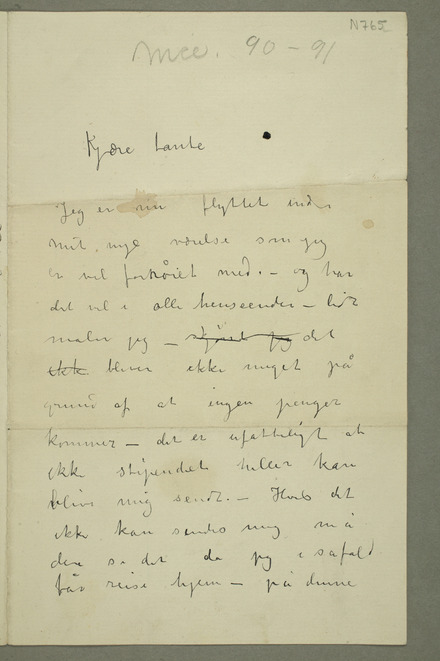 N765
Nice. 90-91
Kjære tante
Jeg er nu flyttet ind i
mit nye værelse som jeg
er vel fornøiet med. – og har
det vel i alle henseender – lidt
maler jeg – det
ikke bliver ikke meget på
grund af at ingen penger
kommer – det er ufatteligt at
ikke stipendiet heller kan
blive mig sendt. – Hvis det
ikke kan sendes mig må
dere se det da jeg i såfald
får reise hjem – på denne